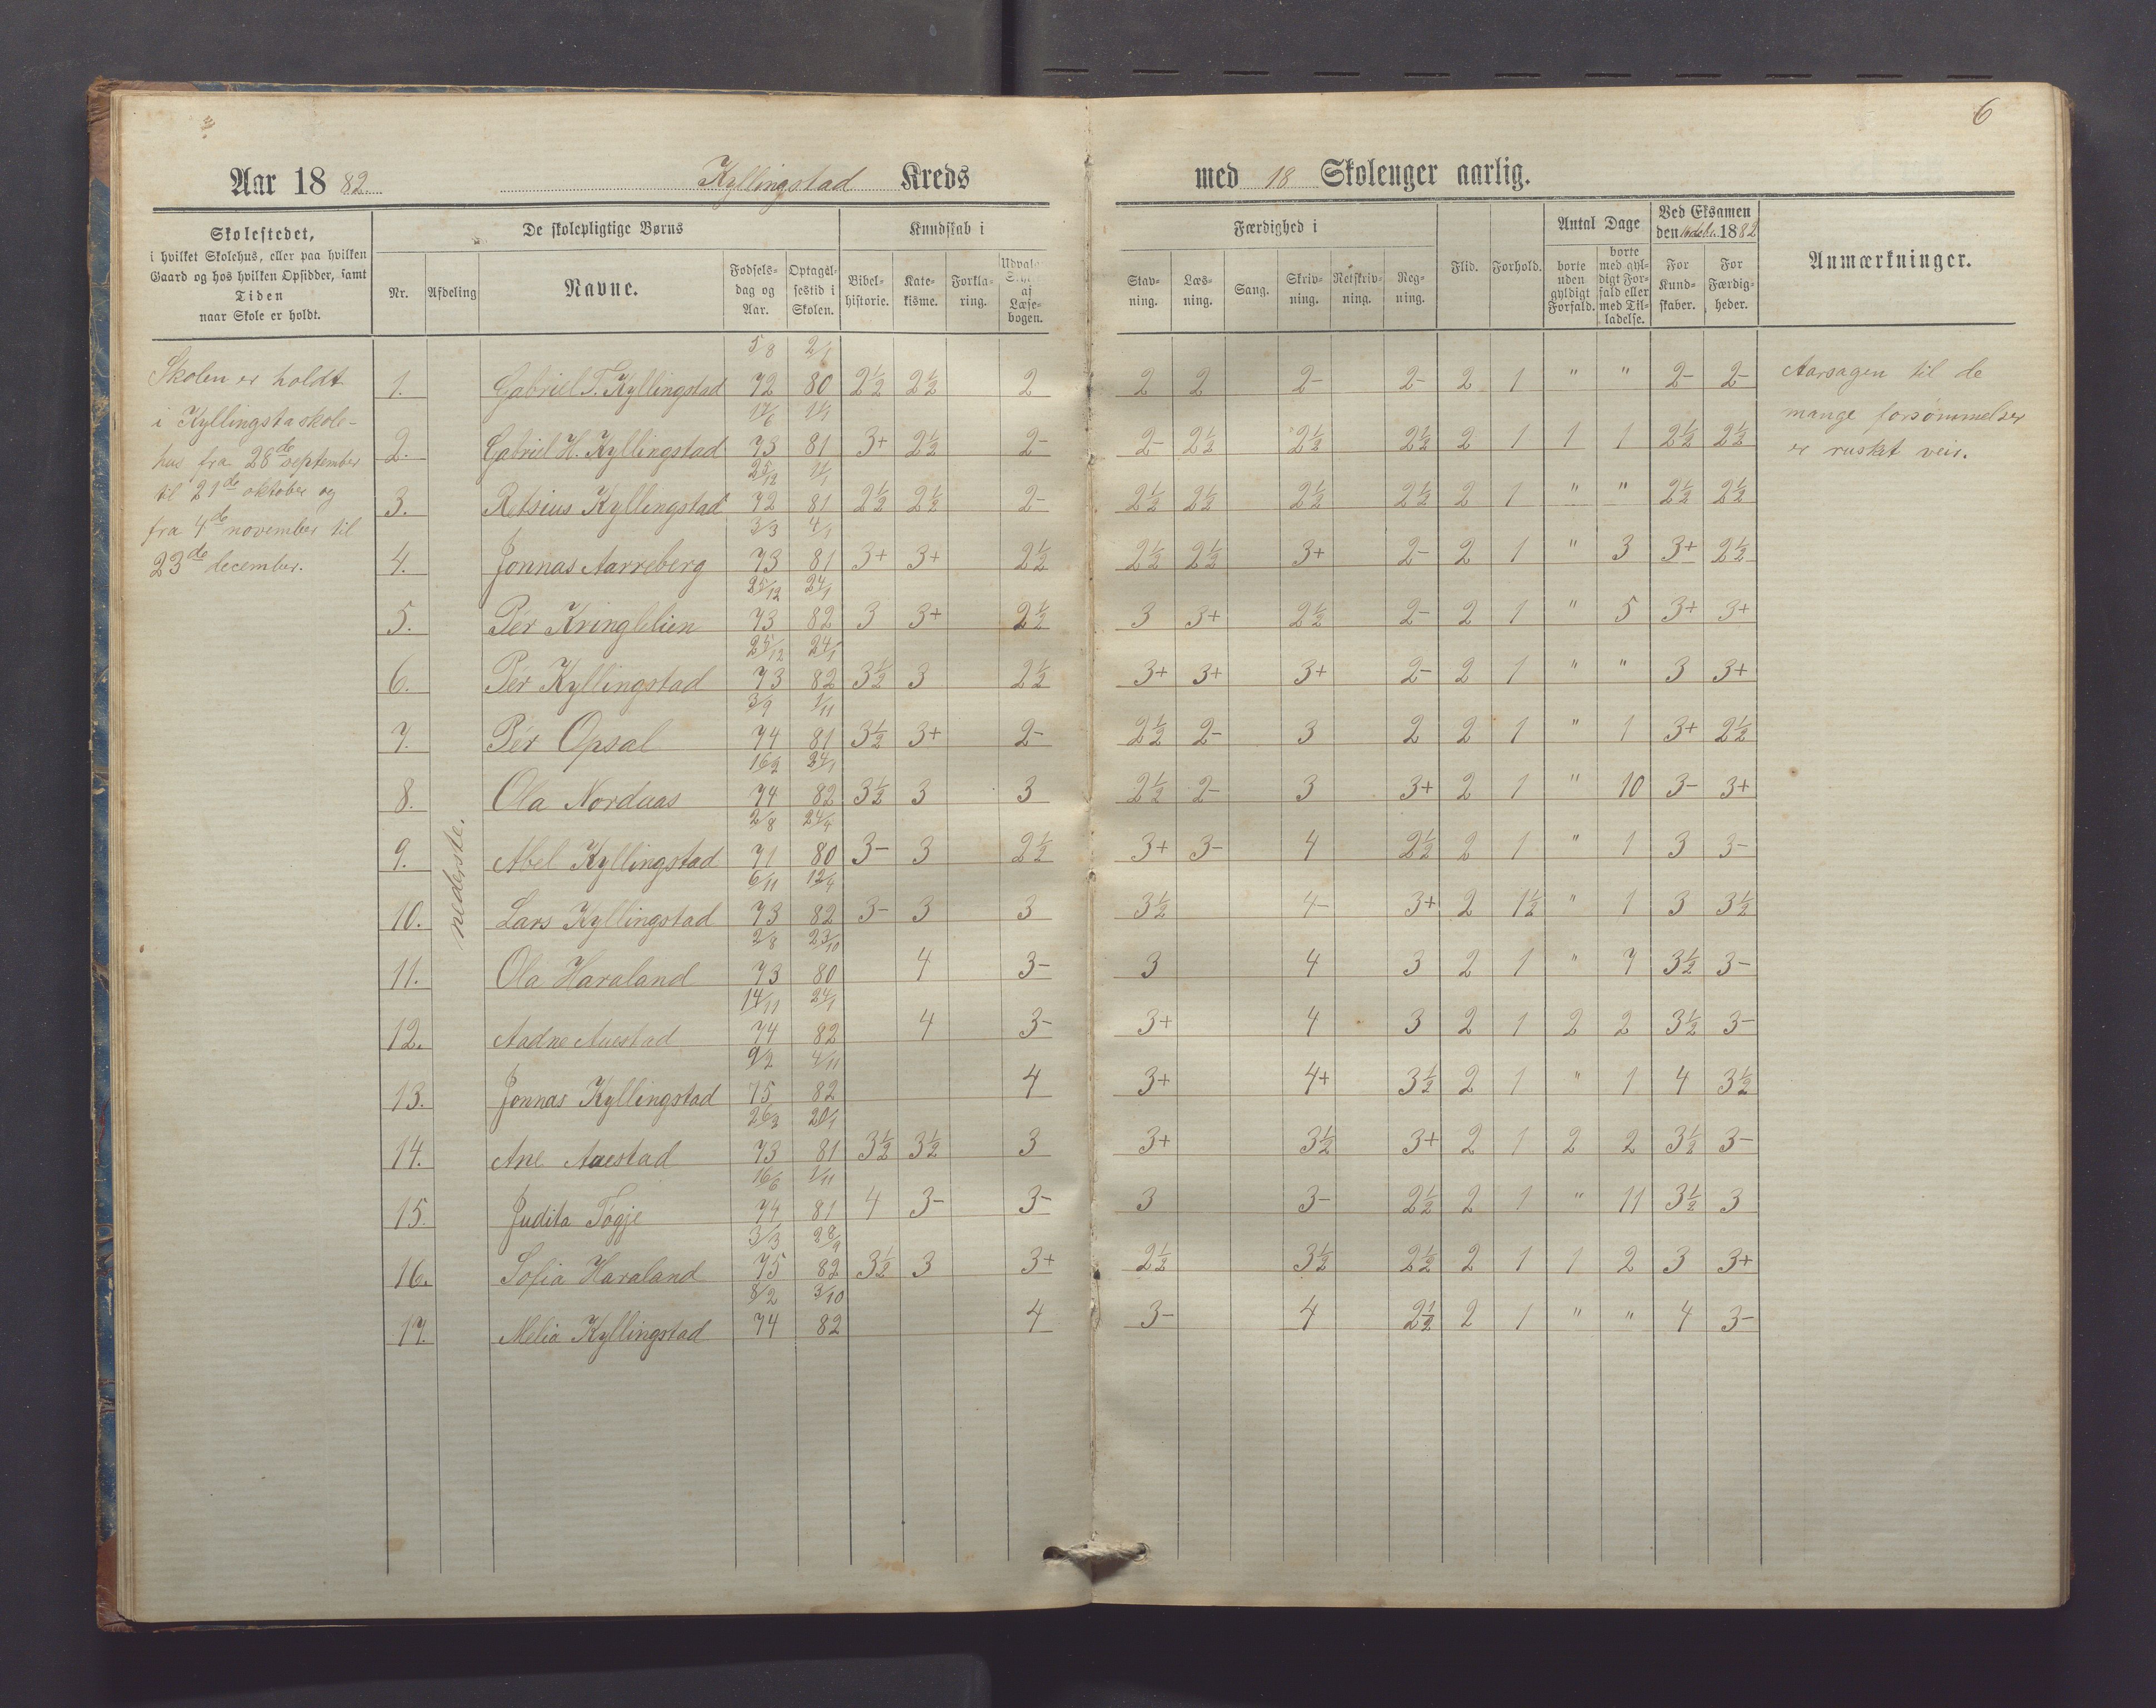 6
Aar 1882. Kyllingstad Kreds med 18 Skolenger aarlig.
Skolestedet,
i hvilket Skolehus, eller paa hvilken
Gaard og hos hvilken Opsidder, samt
Tiden
naar Skole er holdt.
De skolepligtige Børns
Nr. Afdeling Navne. Fødsels-dag og Aar. Optagel-sestid i Skolen.
Kundskab i
Bibel-historie. Kate-kisme. Forkla-ring. Udvalgte Stykker af Læse-bogen.
Færdighed i
Stav-ning. Læs-ning. Sang. Skriv-ning. Retskriv-ning. Reg-ning.
Flid. Forhold.
Antal Dage
borte uden gyldigt Forfald. borte med gyl-digt For-fald eller med Til-ladelse.
Ved Eksamen
den 1882
For Kund-skaber. For Færdig-heder.
Anmærkninger.
Skolen er holdt
i Kyllingstaskole-
hus fra 28de september
til 21de oktober og
fra 4de november til
23de december.
nederste.
1. Gabriel T. Kyllingstad 5/8 72 2/1 80 2½ 2½ 2 2 2 2- 2- 2 1 " " 2- 2-
2. Gabriel H. Kyllingstad 17/6 73 81 3+ 2½ 2- 2- 2½ 2½ 2½ 2 1 1 1 2½ 2½
3. Retsius Kyllingstad 25/12 72 81 2½ 2½ 2- 2½ 2½ 2½ 2½ 2 1 " " 2½ 2½
4. Jonnas Aarreberg 3/3 73 4/1 81 3+ 3+ 2½ 2½ 2½ 3+ 2- 2 1 " 3 3+ 2½
5. Pér Kringlelien 25/12 73 24/1 82 3 3+ 2½ 3 3+ 2½ 2- 2 1 " 5 3+ 3+
6. Pér Kyllingstad 25/12 73 24/1 82 3½ 3 2½ 3+ 3+ 3+ 2- 2 1 " " 3 3+
7. Pér Opsal 3/9 74 1/11 81 3½ 3+ 2- 2½ 2- 3 2 2 1 " 1 3+ 2½
8. Ola Norduas 16/2 74 24/1 82 3½ 3 3 2½ 2- 3 3+ 2 1 " 10 3- 3+
9. Abel Kyllingstad 2/8 71 24/4 80 3- 3 2½ 3+ 3- 4 2½ 2 1 " 1 3 3-
10. Lars Kyllingstad 6/11 73 12/4 82 3- 3 3 3½ 4- 3+ 2 1½ " 1 3 3½
11. Ola Haraland 2/8 73 23/10 80 4 3- 3 4 3 2 1 " 7 3½ 3-
12. Aadne Auestad 14/11 74 24/1 82 4 3- 3+ 4 3 2 1 2 2 3½ 3-
13. Jonnas Kyllingstad 9/2 75 4/11 82 4 3+ 4+ 3½ 2 1 " 1 4 3½
14. Ane Auestad 26/3 73 20/1 81 3½ 3½ 3 3+ 3½ 3+ 2 1 2 2 3½ 3-
15. Judita Togje 16/6 74 1/11 81 4 3- 3- 3 3- 2½ 2 1 " 11 3½ 3
16. Sofia Haraland 3/3 75 28/9 82 3½ 3 3+ 2½ 3½ 2½ 2 1 1 2 3 3+
17. Melia Kyllingstad 8/2 74 3/10 82 4 3- 4 2½ 2 1 " " 4 3-
Aarsagen til de
mange forsømmelser
er rusket veir.